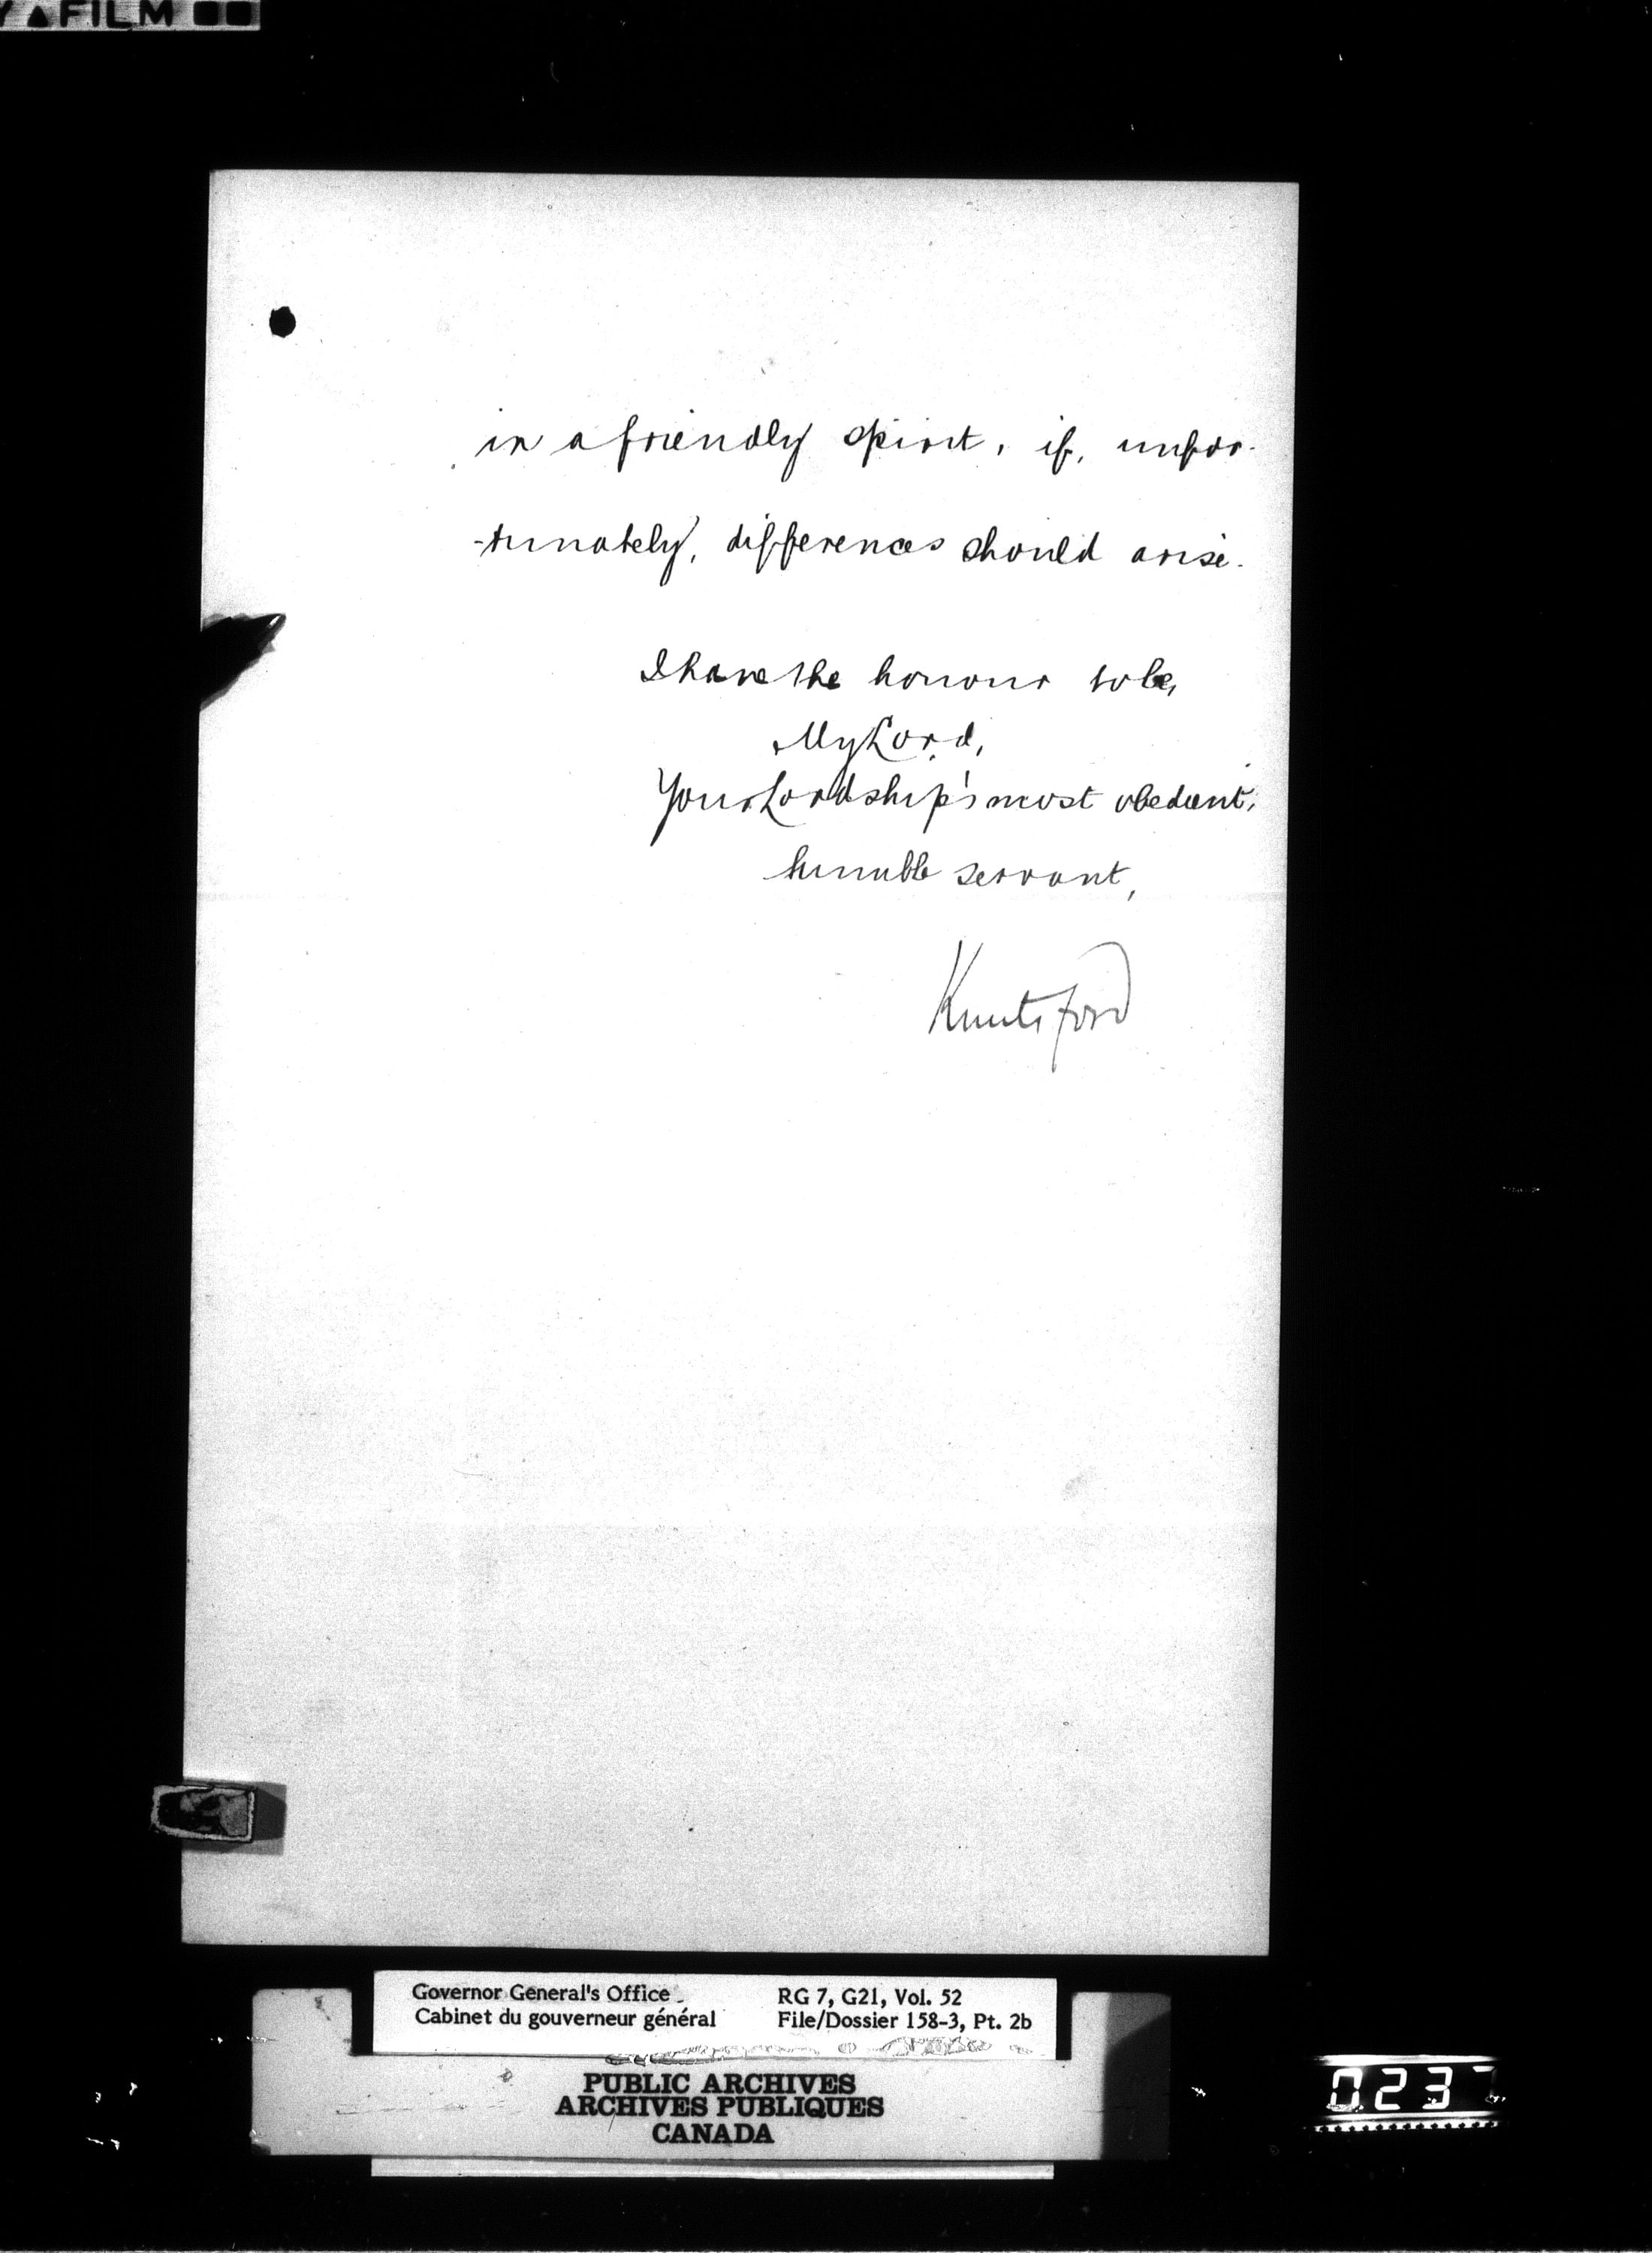 FILM
in a friendly spirit, if, unfor-
-tunately, differences should arise.
I have the honour to be,
My Lord,
Your Lordship's most obedient,
humble servant,
Knutsford
Governor General's Office
Cabinet du gouverneur général
RG 7, G21, Vol. 52
File/Dossier 158-3, Pt. 2b
PUBLIC ARCHIVES
ARCHIVES PUBLIQUES
CANADA
023